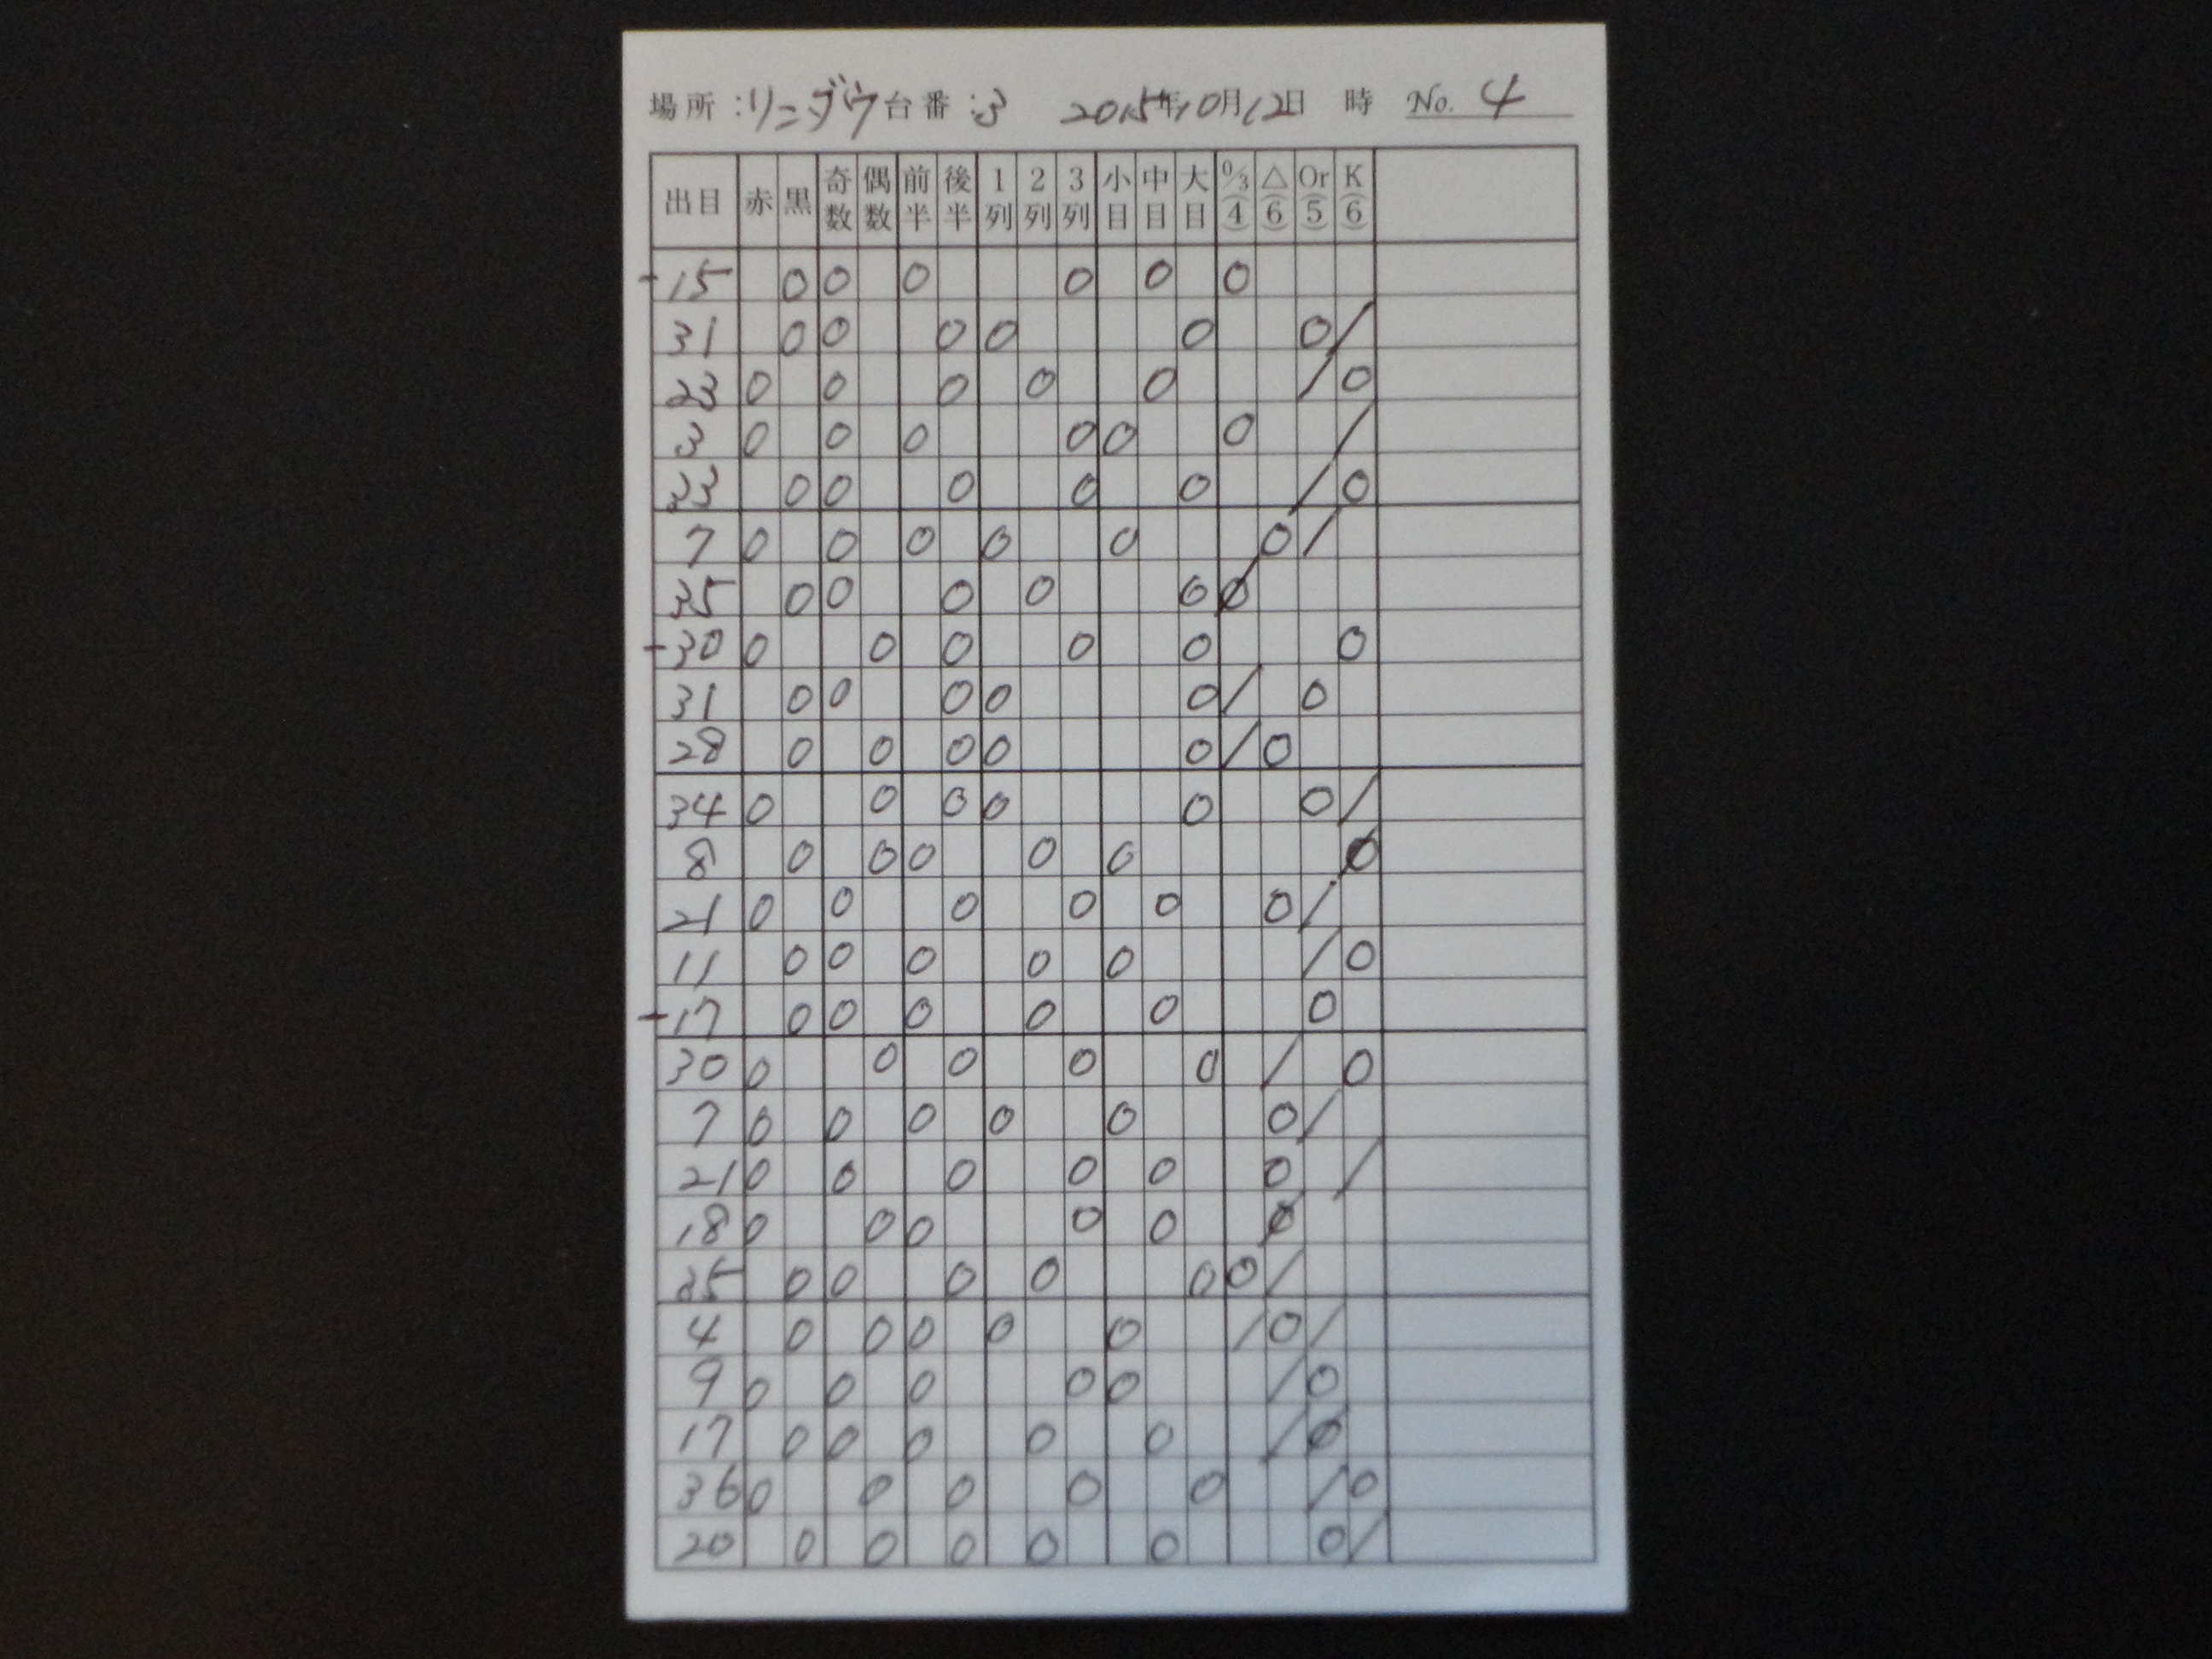 場所:リンダウ 台番:3 2015年10月12日 時 No. 4
出目 赤 黒 奇数 偶数 前半 後半 1列 2列 3列 小目 中目 大目 0/3(4) △(6) Or(5) K(6)
-15 0 0 0 0 0 0
31 0 0 0 0 0 0 /
23 0 0 0 0 0 / 0
3 0 0 0 0 0 0 /
33 0 0 0 0 0 / 0
7 0 0 0 0 0 0 /
35 0 0 0 0 0 0
-30 0 0 0 0 0 0
31 0 0 0 0 0 / 0
28 0 0 0 0 0 / 0
34 0 0 0 0 0 0 /
8 0 0 0 0 0 0
21 0 0 0 0 0 0 /
11 0 0 0 0 0 / 0
-17 0 0 0 0 0 0
30 0 0 0 0 0 / 0
7 0 0 0 0 0 0 /
21 0 0 0 0 0 0 /
18 0 0 0 0 0 0
35 0 0 0 0 0 0 /
4 0 0 0 0 0 / 0 /
9 0 0 0 0 0 / 0
17 0 0 0 0 0 / 0
36 0 0 0 0 0 / 0
20 0 0 0 0 0 0 /